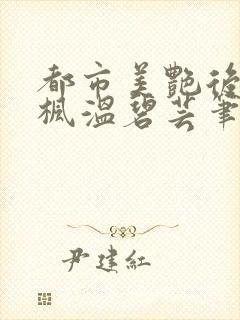 都市美艷後
楓溫碧芸筆
尹建紅